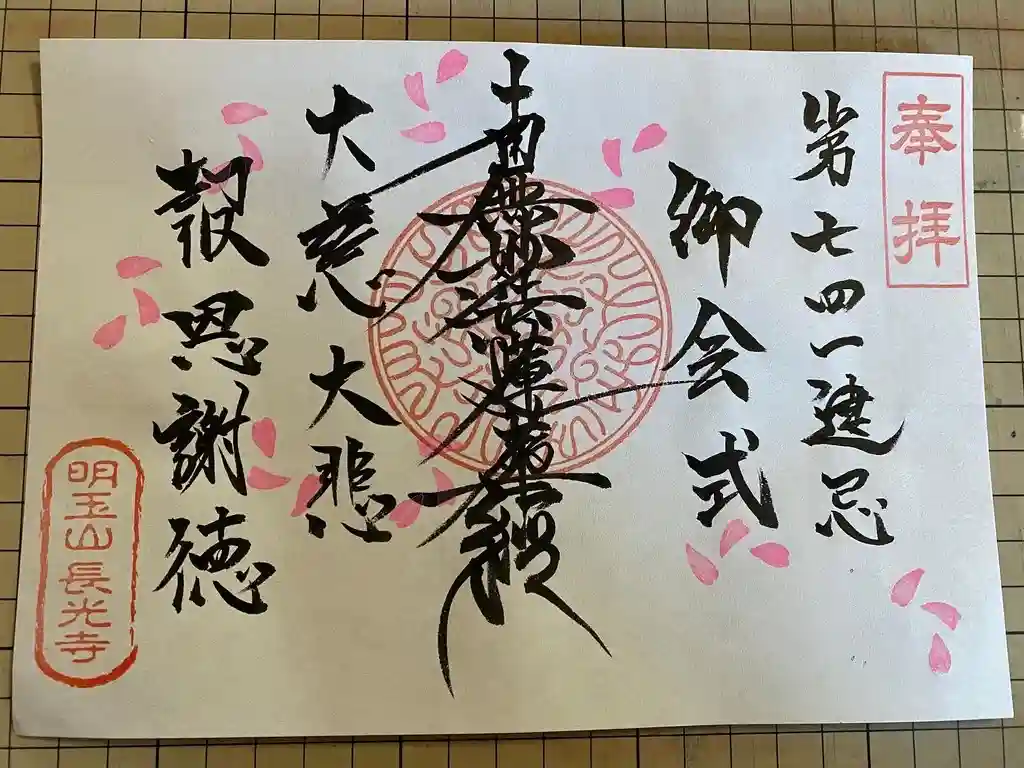 奉拝
第七四一遠忌
御会式
南無妙法蓮華経
大慈大悲
報恩謝徳
明玉山長光寺